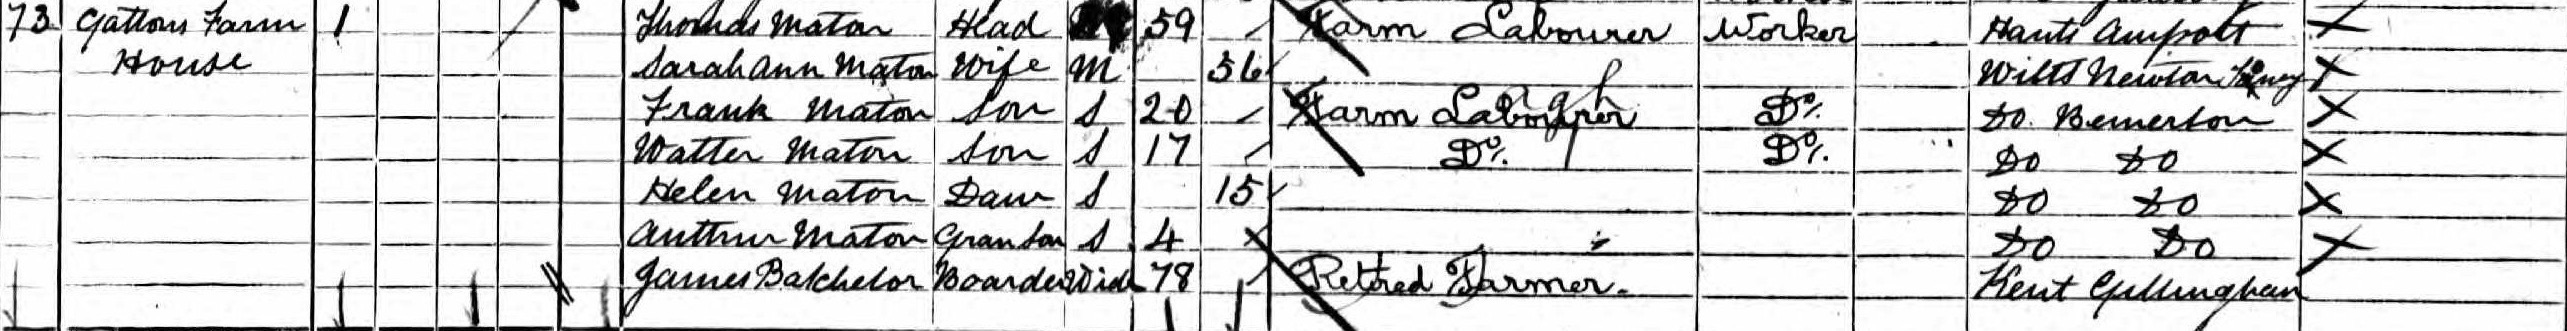 73 Gattons Farm 1 Thomas Maton Head M 59 Farm Labourer Worker Hants Amport
House Sarah Ann Maton Wife M 56 Wilts Newton Toney
Frank Maton Son S 20 Farm Labourer agl Do. Do. Bemerton
Walter Maton Son S 17 Do. Do. Do Do
Helen Maton Daur S 15 Do Do
Arthur Maton Granson S 4 Do Do
James Batchelor Boarder Widr 78 Retired Farmer. Kent Gillingham